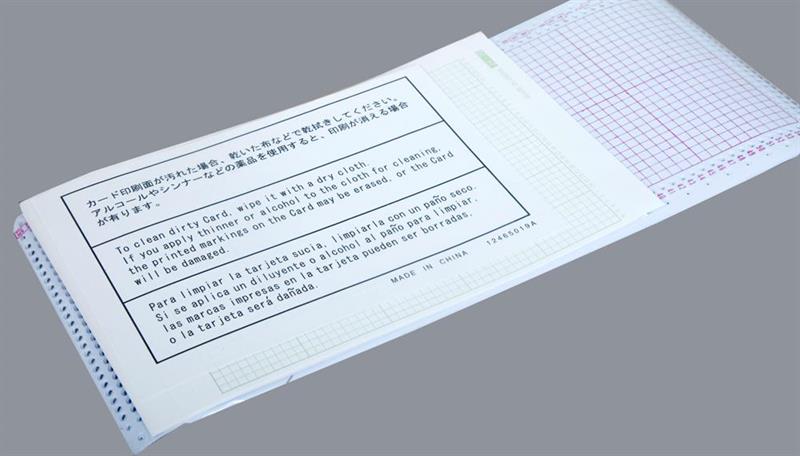 カード印刷面が汚れた場合、乾いた布などで乾拭きしてください。
アルコールやシンナーなどの薬品を使用すると、印刷が消える場合
が有ります。
To clean dirty Card, wipe it with a dry cloth.
If you apply thinner or alcohol to the cloth for cleaning,
the printed markings on the Card may be erased, or the Card
will be damaged.
Para limpiar la tarjeta sucia, limpiarla con un paño seco.
Si se aplica un diluyente o alcohol al paño para limpiar,
las marcas impresas en la tarjeta pueden ser borradas,
o la tarjeta será dañada.
MADE IN CHINA 12465019A